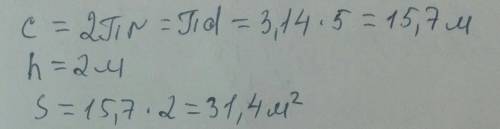 c = 2πr = πd = 3,14 · 5 = 15,7 м
h = 2 м
S = 15,7 · 2 = 31,4 м²